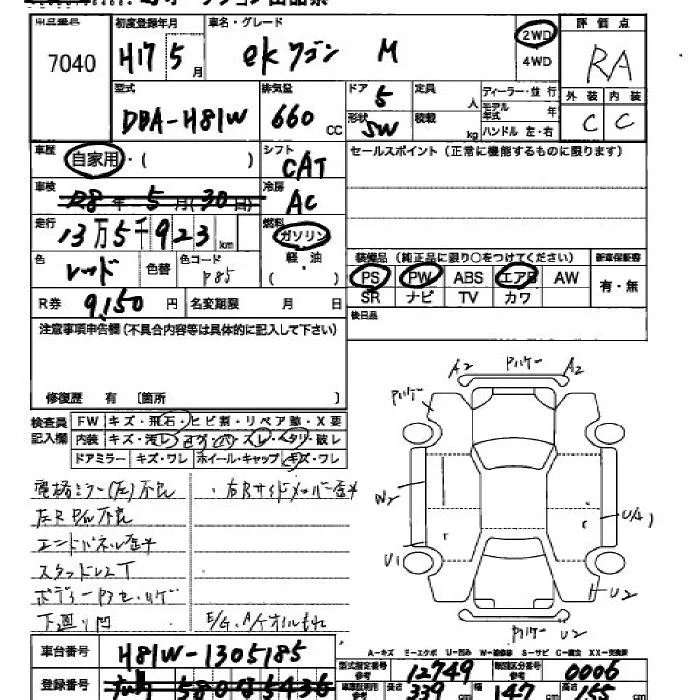 初度登録年月 車名・グレード
7040 H17 5月 ekワゴン M 2WD 4WD
評価点 RA
型式 排気量 ドア 定員 ディーラー・並行
DBA-H81W 660 CC 5 人 モデル年式 年
形状 SW 積載 kg ハンドル 左・右
外装 内装
C C
車歴 シフト セールスポイント (正常に機能するものに限ります)
自家用・( ) CAT
車検 冷房
R8年5月(30日) AC
走行 燃料
13万5千923km ガソリン
色 色替 色コード 軽・油
レッド P85 ( )
装備品 (純正品に限り○をつけてください) 新車保証書
PS PW ABS エアB AW 有・無
SR ナビ TV カワ
R券 9,150円 名変期限 月 日
後日品
注意事項申告欄(不具合内容等は具体的に記入して下さい)
修復歴 有 〔箇所 〕
検査員記入欄
FW キズ・飛石・ヒビ割・リペア跡・X要
内装
ドアミラー キズ・ワレ ホイール・キャップ キズ・ワレ
A2 A2
W2
U1
U2
U2
電格ミラー(左)不良
左R P/W不良
エンドパネル歪み
スタッドレスT
E/G, A/Tオイルもれ
車台番号 H81W-1305185
登録番号
A-キズ E-エクボ U-凹み W-補修跡 S-サビ C-腐食 XX-交換済
型式指定番号 12749 類別区分番号 0006
長さ 339 cm 幅 147 cm 高さ 155 cm